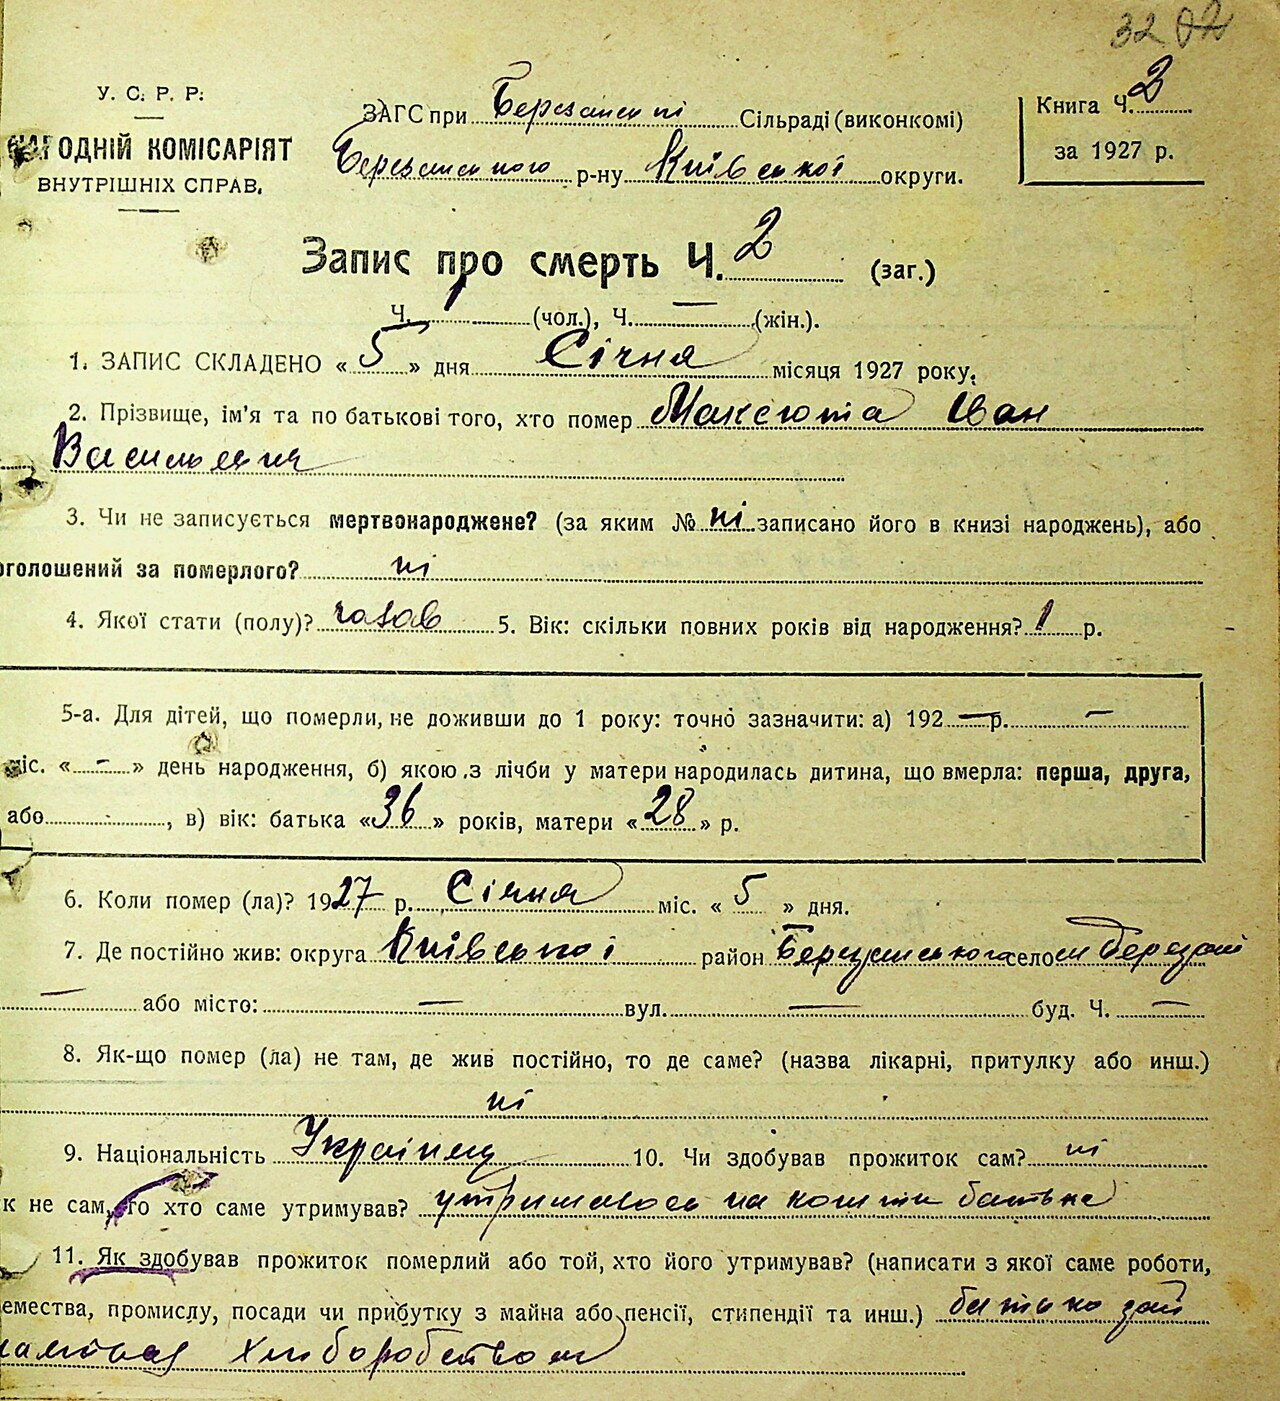 32
У. С. Р. Р.
НАРОДНІЙ КОМІСАРІЯТ
ВНУТРІШНІХ СПРАВ.
ЗАГС при Березанскі Сільраді (виконкомі)
Березанського р-ну Київської округи.
Книга Ч. 2
за 1927 р.
Запис про смерть Ч. 2 (заг.)
Ч. 1 (чол.), Ч. — (жін.).
1. ЗАПИС СКЛАДЕНО « 5 » дня Січня місяця 1927 року.
2. Прізвище, ім'я та по батькові того, хто помер Максюта Іван
Васильевич
3. Чи не записується мертвонароджене? (за яким № ні записано його в книзі народжень), або
оголошений за померлого? ні
4. Якої стати (полу)? чолов 5. Вік: скільки повних років від народження? 1 р.
5-а. Для дітей, що померли, не доживши до 1 року: точно зазначити: а) 192 — р. —
міс. « — » день народження, б) якою з лічби у матери народилась дитина, що вмерла: перша, друга,
або , в) вік: батька « 36 » років, матери « 28 » р.
6. Коли помер (ла)? 1927 р. Січня міс. « 5 » дня.
7. Де постійно жив: округа Київської район Березанського село м Березань
— або місто: — вул. — буд. Ч. —
8. Як-що помер (ла) не там, де жив постійно, то де саме? (назва лікарні, притулку або инш.)
ні
9. Національність Українец 10. Чи здобував прожиток сам? ні
к не сам, то хто саме утримував? утрималось на кошти батька
11. Як здобував прожиток померлий або той, хто його утримував? (написати з якої саме роботи,
емества, промислу, посади чи прибутку з майна або пенсії, стипендії та инш.) батько зай
мався Хліборобством